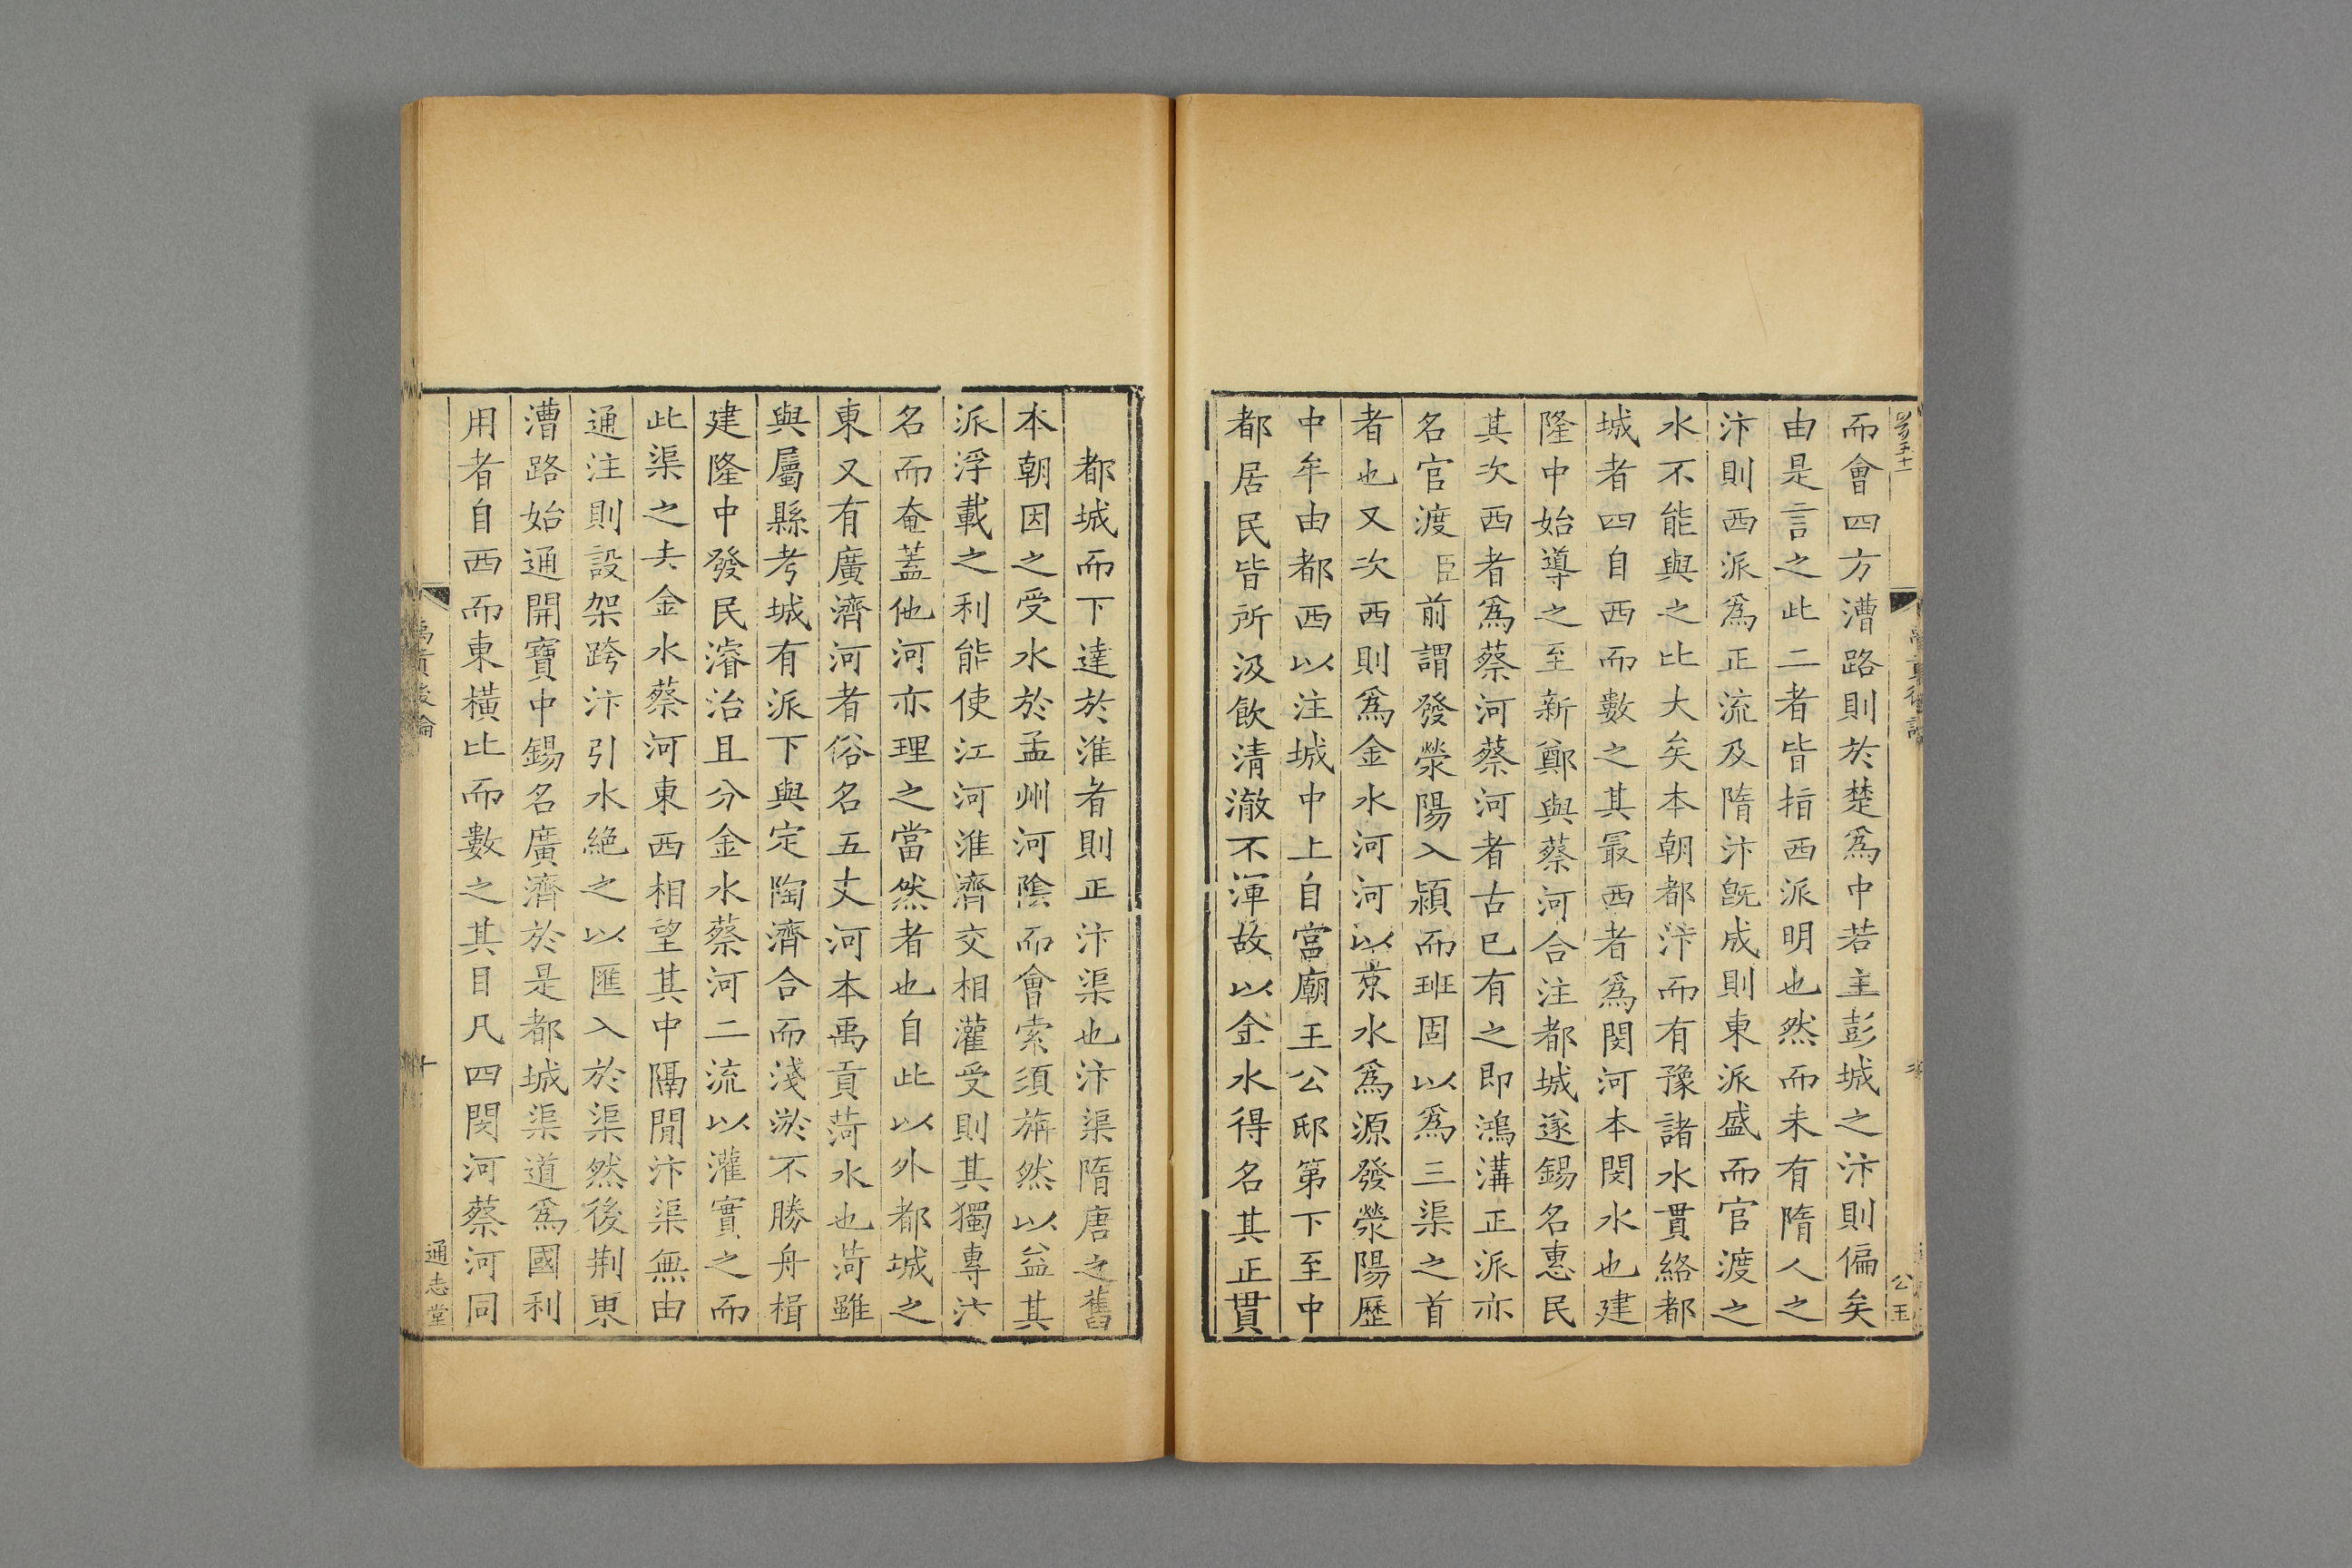 而會四方漕路則於楚爲中若主彭城之汴則偏矣
由是言之此二者皆指西派明也然而未有隋人之
汴則西派爲正流及隋汴旣成則東派盛而官渡之
水不能與之比大矣本朝都汴而有豫諸水貫絡都
城者四自西而數之其最西者爲閔河本閔水也建
隆中始導之至新鄭與蔡河合注都城遂錫名惠民
其次西者爲蔡河蔡河者古已有之即鴻溝正派亦
名官渡臣前謂發滎陽入潁而班固以爲三渠之首
者也又次西則爲金水河河以京水爲源發滎陽歷
中牟由都西以注城中上自宮廟王公邸第下至中
都居民皆所汲飲清澈不渾故以金水得名其正貫
都城而下達於淮者則正汴渠也汴渠隋唐之舊
本朝因之受水於孟州河陰而會索須旃然以益其
派浮載之利能使江河淮濟交相灌受則其獨專汴
名而奄蓋他河亦理之當然者也自此以外都城之
東又有廣濟河者俗名五丈河本禹貢菏水也菏雖
與屬縣考城有派下與定陶濟合而淺淤不勝舟楫
建隆中發民濬治且分金水蔡河二流以灌實之而
此渠之去金水蔡河東西相望其中隔閒汴渠無由
通注則設架跨汴引水絕之以匯入於渠然後荆東
漕路始通開寶中錫名廣濟於是都城渠道爲國利
用者自西而東橫比而數之其目凡四閔河蔡河同
禹貢後論
十
通志堂